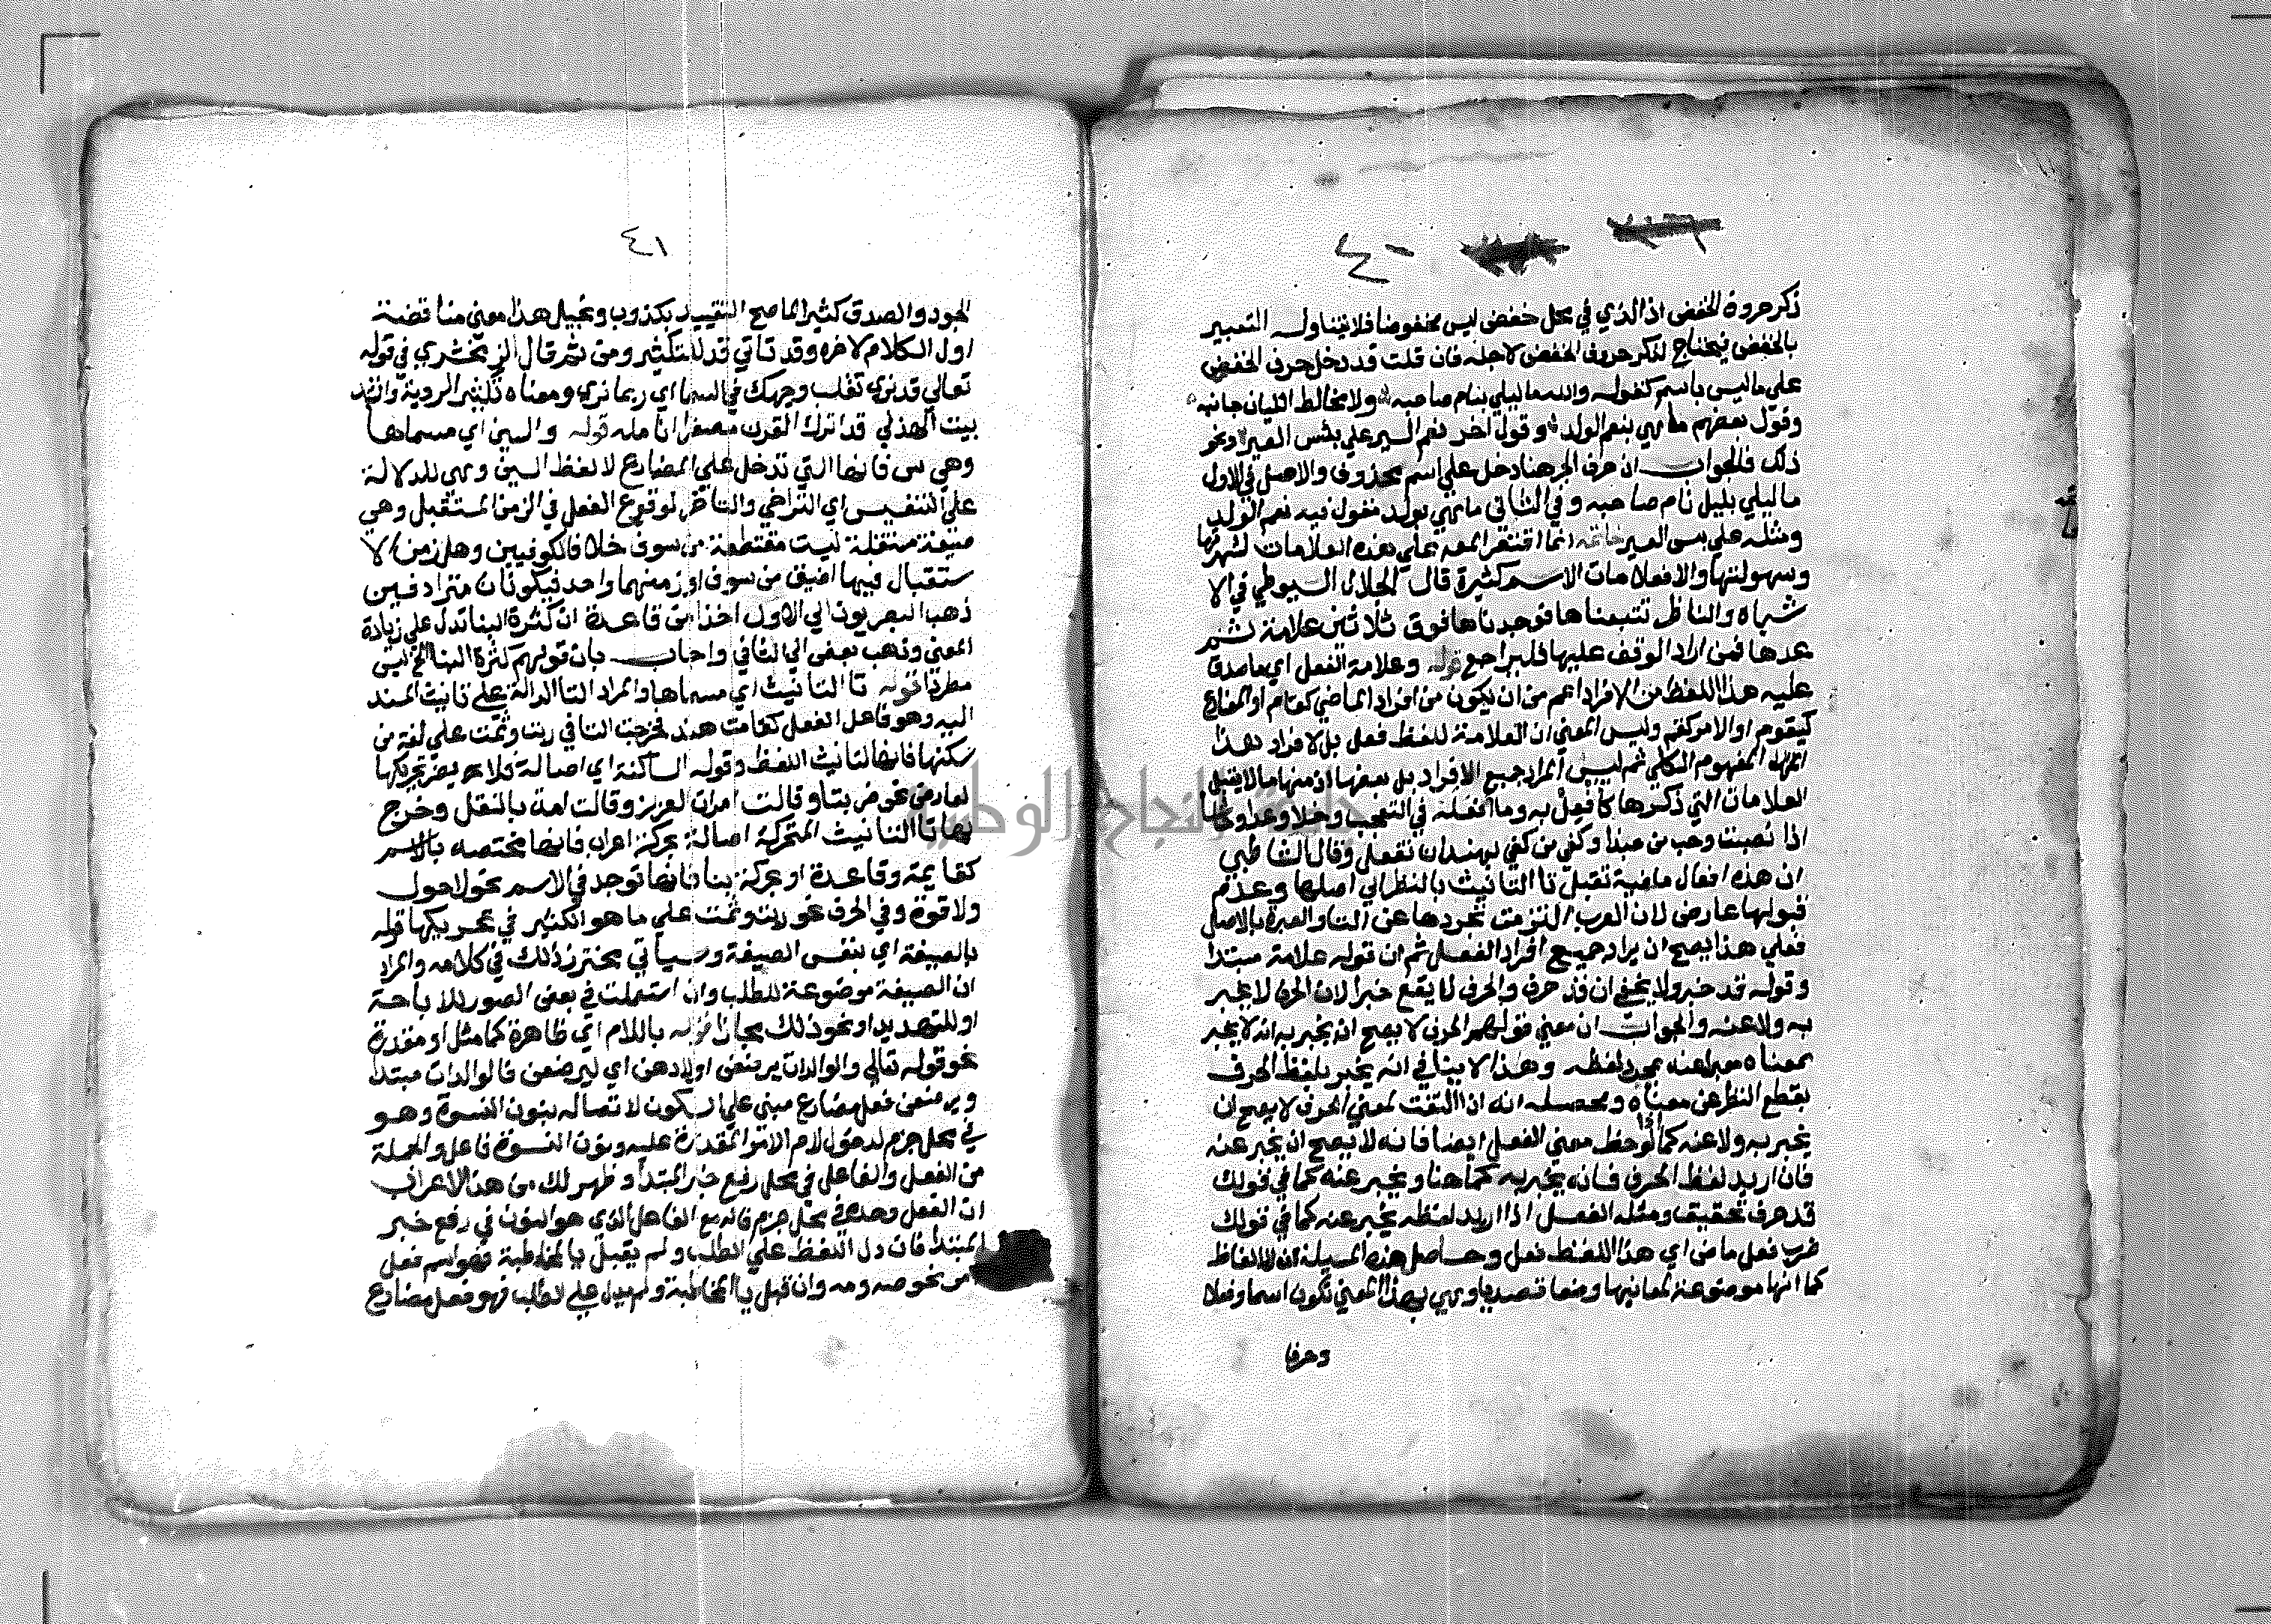 ٤٠
ذكر حروف الخفض اذ الذي في محل خفض ليس مخفوضا فلا يتناوله التعبير
بالخفض فيحتاج لذكر حروف الخفض لاجله فان قلت قد دخل حرف الخفض
على ما ليس باسم كقوله والله ما ليلي بنام صاحبه ولا مخالط الليان جانبه
وقول بعضهم ما هي بنعم الولد وقول اخر نعم السير علي بئس العير ونحو
ذلك فالجواب ان حرف الجر هنا دخل علي اسم محذوف والاصل في الاول
ما ليلي بليل نام صاحبه وفي الثاني ما هي بولد مقول فيه نعم الولد
ومثله علي بئس العير خاتمة انما اقتصر المص علي هذه العلامات لشهرتها
وسهولتها والا فعلامات الاسم كثيرة قال الجلال السيوطي في الا
شباه والناظر تتبعناها فوجدناها فوق ثلاثين علامة ثم
عدها فمن اراد الوقف عليها فليراجع قوله وعلامة الفعل اي ما صدق
عليه هذا اللفظ من الافراد اعم من ان يكون من افراد الماضي كقام او المضارع
كيقوم او الامر كقم وليس المعني ان العلامة للفظ فعل بل لافراد هذا
المفهوم الكلي ثم ليس المراد جميع الافراد بل بعضها اذ منها ما لا يقبل
العلامات التي ذكرها كأفعل به وما افعله في التعجب وخلا وعدا وحاشا
اذا نصبت وحب من حبذا وكفي من كفي بهند ان تفعل وقال الشاطبي
ان هذه افعال ماضية تقبل تا التانيث بالنظر الي اصلها وعدم
قبولها عارض لان العرب التزمت تجردها عن التا والعبرة بالاصل
فعلي هذا يصح ان يراد جميع افراد الفعل ثم ان قوله علامة مبتدا
وقوله قد خبر ولا يخفي ان قد حرف والحرف لا يقع خبرا لان الحرف لا يخبر
به ولا عنه والجواب ان معني قولهم الحرف لا يصح ان يخبر به انه لا يخبر
بمعناه معبرا عنه بمجرد لفظه وهذا لا ينافي انه يخبر بلفظ الحرف
بقطع النظر عن معناه ومحصله انه اذا التفت لمعني الحرف لا يصح ان
يخبر به ولا عنه كما اذا لوحظ معني الفعل ايضا فانه لا يصح ان يخبر عنه
فان اريد لفظ الحرف فانه يخبر به كما هنا ويخبر عنه كما في قولك
قد حرف تحقيق ومثله الفعل اذا اريد لفظه يخبر عنه كما في قولك
ضرب فعل ماض اي هذا اللفظ فعل وحاصل هذه المسيلة ان الالفاظ
كما انها موضوعة لمعانيها وضعا قصديا وهي بهذا المعني تكون اسما وفعلا
وحرفا
٤١
الجود والصدق كثير الما صح التقييد بكذوب وبخيل هذا معني مناقضة
اول الكلام لاخره وقد تاتي قد للتكثير ومن ثم قال الزمخشري في قوله
تعالي قد نري تقلب وجهك في السما اي ربما نري ومعناه تكثير الروية وانشد
بيت الهذلي قد اترك القرن مصفرا انامله قوله والسين اي مسماها
وهي س فانها التي تدخل علي المضارع لا لفظ السين وهي للدلالة
علي التنفيس اي التراخي والتاخر لوقوع الفعل في الزمن المستقبل وهي
صيغة مستقلة ليست مقتطعة من سوف خلافا للكوفيين وهل زمن الا
ستقبال فيها اضيق من سوف او زمنهما واحد فيكونان مترادفين
ذهب البصريون الي الاول اخذا من قاعدة ان كثرة البنا تدل علي زيادة
المعني وذهب بعض الي الثاني واجاب بان قولهم كثرة البنا الخ ليس
مطردا قوله تا التانيث اي مسماها والمراد التا الدالة علي تانيث المسند
اليه وهو فاعل الفعل كقامت هند فخرجت التا في ربت وثمت علي لغة من
سكنها فانها لتانيث اللفظ وقوله الساكنة اي اصالة فلا يضر تحريكها
لعارض نحو ضربتا وقالت امرات العزيز وقالت امة بالنقل وخرج
بها تا التانيث المتحركة اصالة بحركة اعراب فانها مختصه بالاسم
كقايمة وقاعدة او بحركة بنا فانها توجد في الاسم نحو لا حول
ولا قوة وفي الحرف نحو ربت وثمت علي ما هو الكثير في تحريكها قوله
بالصيغة اي بنفس الصيغة وسياتي محترز ذلك في كلامه والمراد
ان الصيغة موضوعة للطلب وان استعملت في بعض الصور للاباحة
او للتهديد او نحو ذلك مجازا قوله باللام اي ظاهرة كما مثل او مقدرة
نحو قوله تعالي والوالدات يرضعن اولادهن اي ليرضعن فالوالدات مبتدا
ويرضعن فعل مضارع مبني علي السكون لاتصاله بنون النسوة وهو
في محل جزم لدخول لام الامر المقدرة عليه ونون النسوة فاعل والجملة
من الفعل والفاعل في محل رفع خبر المبتدا وظهر لك من هذا الاعراب
ان الفعل وحده في محل جزم فانه مع الفاعل الذي هو النون في رفع خبر
المبتدا فان دل اللفظ علي الطلب ولم يقبل يا المخاطبة فهو اسم فعل
امر نحو صه ومه وان قبل يا المخاطبة ولم يدل علي الطلب فهو فعل مضارع